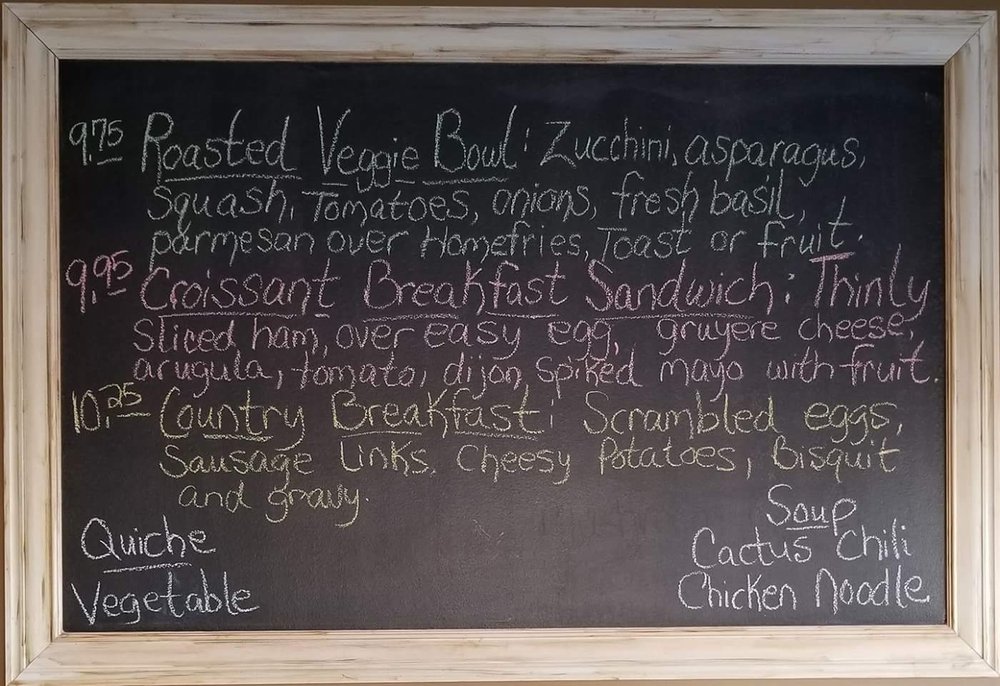 9.75 Roasted Veggie Bowl: Zucchini, asparagus,
Squash, Tomatoes, onions, fresh basil,
parmesan over Homefries, Toast or fruit.
9.95 Croissant Breakfast Sandwich: Thinly
Sliced ham, over easy egg, gruyere cheese,
arugula, tomato, dijon spiked mayo with fruit.
10.25 Country Breakfast: Scrambled eggs,
Sausage Links, Cheesy Potatoes, Bisquit
and gravy.
Quiche
Vegetable
Soup
Cactus Chili
Chicken Noodle